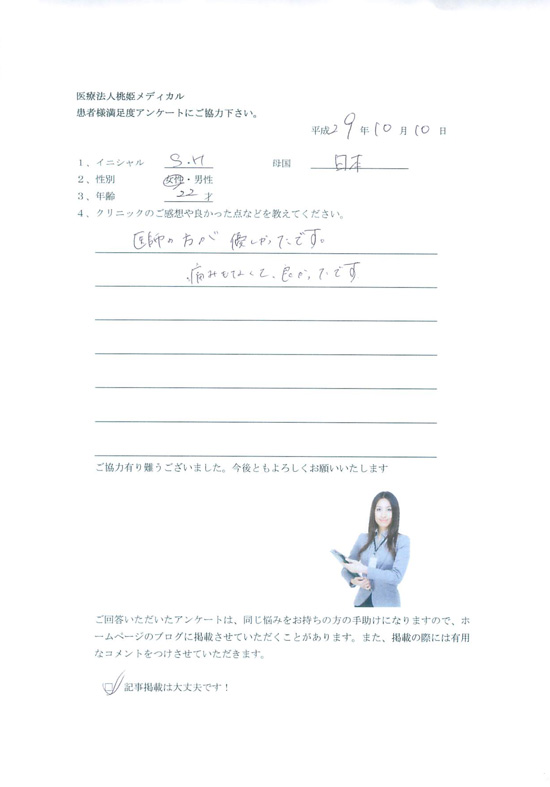 医療法人桃姫メディカル
患者様満足度アンケートにご協力下さい。
平成29年10月10日
1、イニシャル S.M 母国 日本
2、性別 女性・男性
3、年齢 22才
4、クリニックのご感想や良かった点などを教えてください。
医師の方が優しかったです。
痛みもなくて、良かったです
ご協力有り難うございました。今後ともよろしくお願いいたします
ご回答いただいたアンケートは、同じ悩みをお持ちの方の手助けになりますので、ホ
ームページのブログに掲載させていただくことがあります。また、掲載の際には有用
なコメントをつけさせていただきます。
記事掲載は大丈夫です！